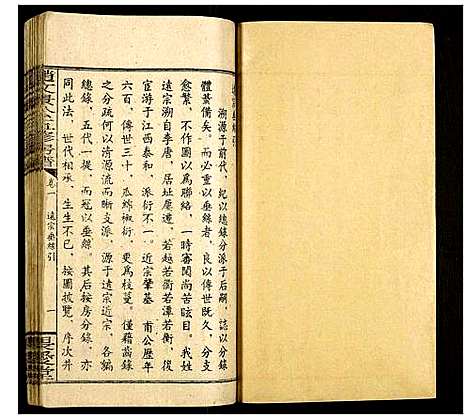 遠宗垂絲引
溯源于前代紀以遠錄分派于后嗣誌以分錄
體葢備矣而必重以垂絲者良以傳世既久分支
愈繁不作圖以爲聯絡一時審閱尚苦眩目我姓
遠宗溯自李唐居址屢遷若越若衢若潭若衡俊
宦游于江西泰和派衍不一近宗肇基 甫公歷年
六百傳世三十瓜綿椒衍更爲枝蔓僅藉齒錄
總錄五代一提而冠以垂絲其后按房分錄亦
不足以清源流而晰次序爰于遠宗近宗各編
同此法世代相承生生不已按圖披覽序次井
卷一 遠宗垂絲引 一